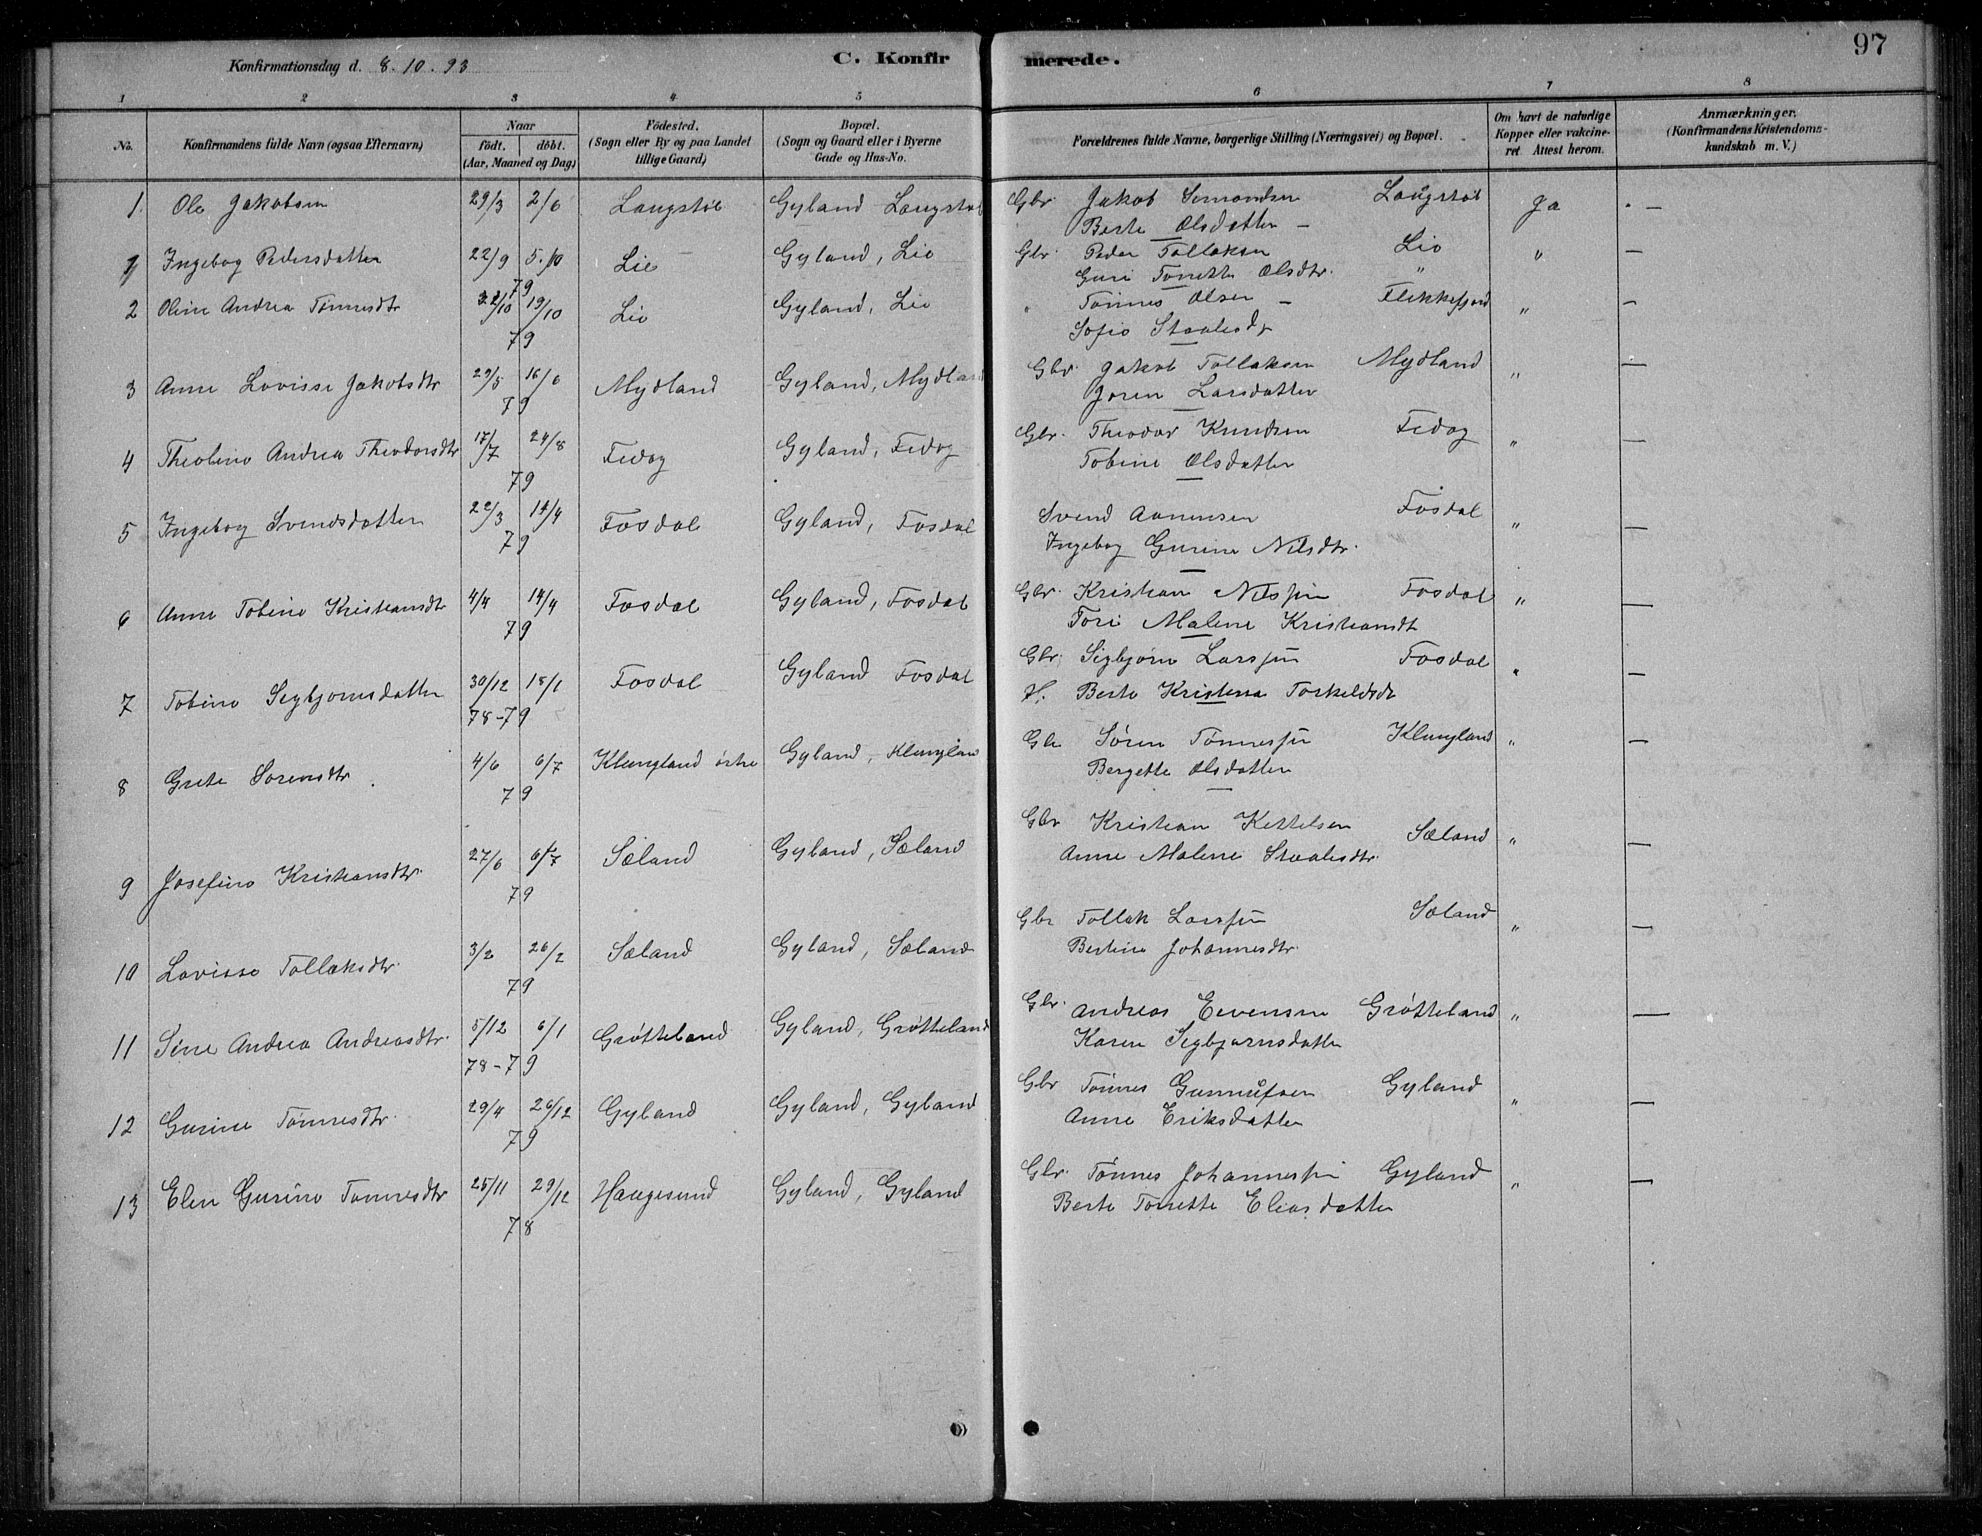 97
Konfirmationsdag d. 8.10.93
C. Konfirmerede.
1 2 3 4 5 6 7 8
No. Konfirmandens fulde Navn (ogsaa Efternavn) Naar født. døbt. (Aar, Maaned og Dag) Fødested. (Sogn eller By og paa Landet tillige Gaard) Bopæl. (Sogn og Gaard eller i Byerne Gade og Hus-No. Forældrenes fulde Navne, borgerlige Stilling (Næringsvei) og Bopæl. Om havt de naturlige Kopper eller vakcineret. Attest herom. Anmærkninger. (Konfirmandens Kristendomskundskab m. V.)
1. Ole Jakobsen 29/3 2/6 Laugstøl Gyland Laugstøl Gbr. Jakob Simondsen Laugstøl Ja . —
Berte Olsdatter —
1 Ingebog Pedersdatter 22/9 5.10 Lie Gyland, Lie Gbr. Peder Tollaksen Lie " —
79 Guri Tonette Olsdtr. "
2 Oline Andrea Tønnesdtr 2/10 19/10 Lie Gyland, Lie " Tønnes Olsen — Flekkefjord " —
79 Sofie Staalesdr
3 Anne Lovisse Jakobsdtr 29/5 16/6 Mydland Gyland, Mydland Gbr. Jakob Tollaksen Mydland " —
79 Joren Larsdatter
4 Theoline Andrea Theodorsdtr 17/7 24/8 Fedog Gyland, Fedog Gbr. Theodor Knudsen Fedog " —
79 Tobine Olsdatter
5 Ingebog Svendsdatter 22/3 14/4 Fosdal Gyland, Fosdal Svend Aanensen Fosdal " —
79 Ingebog Gurine Nilsdtr.
6 Anne Tobine Kristiansdtr 4/4 14/4 Fosdal Gyland, Fosdal Gbr. Kristian Nilssen Fosdal " —
79 Tori Malene Kristiansdt
7 Tobine Sigbjørnsdatter 30/12 18/1 Fosdal Gyland Fosdal Gbr. Sigbjørn Larssen Fosdal " —
78-79 H. Berte Kristena Torkeldsdr
8 Grete Sorensdtr. 4/6 6/7 Klungland østre Gyland, Klungland Gbr Søren Tønnessen Klungland " —
79 Bergette Olsdatter
9 Josefine Kristiansdtr. 27/6 6/7 Sæland Gyland, Sæland Gbr Kristian Kettelsen Sæland " —
79 Anne Malene Staalesdtr.
10 Lovisse Tollaksdtr. 3/2 26/2 Sæland Gyland, Sæland Gbr Tollak Larssen Sæland " —
79 Bertine Johannesdtr.
11 Sine Andrea Andreasdtr. 5/12 6/1 Grøtteland Gyland, Grøtteland Gbr. Andreas Eevensen Grøtteland " —
78-79 Karen Sigbjørnsdatter
12 Gurine Tønnesdtr. 29/4 26/12 Gyland Gyland, Gyland Gbr Tønnes Gunnufsen Gyland " —
79 Anne Eriksdatter
13 Elen Gurine Tønnesdtr 25/11 29/12 Haugesund Gyland, Gyland Gbr. Tønnes Johannessen Gyland " —
78 Berte Tonette Eliasdatter